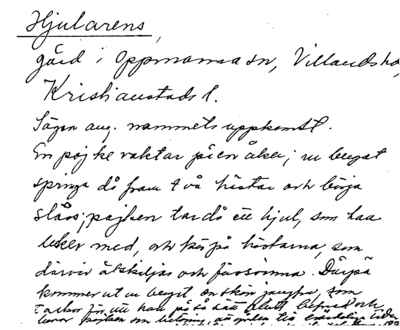 Hjularens,
gård i Oppmanna sn, Villands hd,
Kristianstads l.
Sägen ang. namnets uppkomst.
En pojke vaktar på en åker; ur berget
springa då fram två hästar och börja
slåss; pojken tar då ett hjul, som han
leker med, och kör på hästarna, som
därvid åtskiljas och försvinna. Därpå
kommer ut ur berget en skön jungfru, som
tackar för att han på så sätt befriat och
lovar pojken om